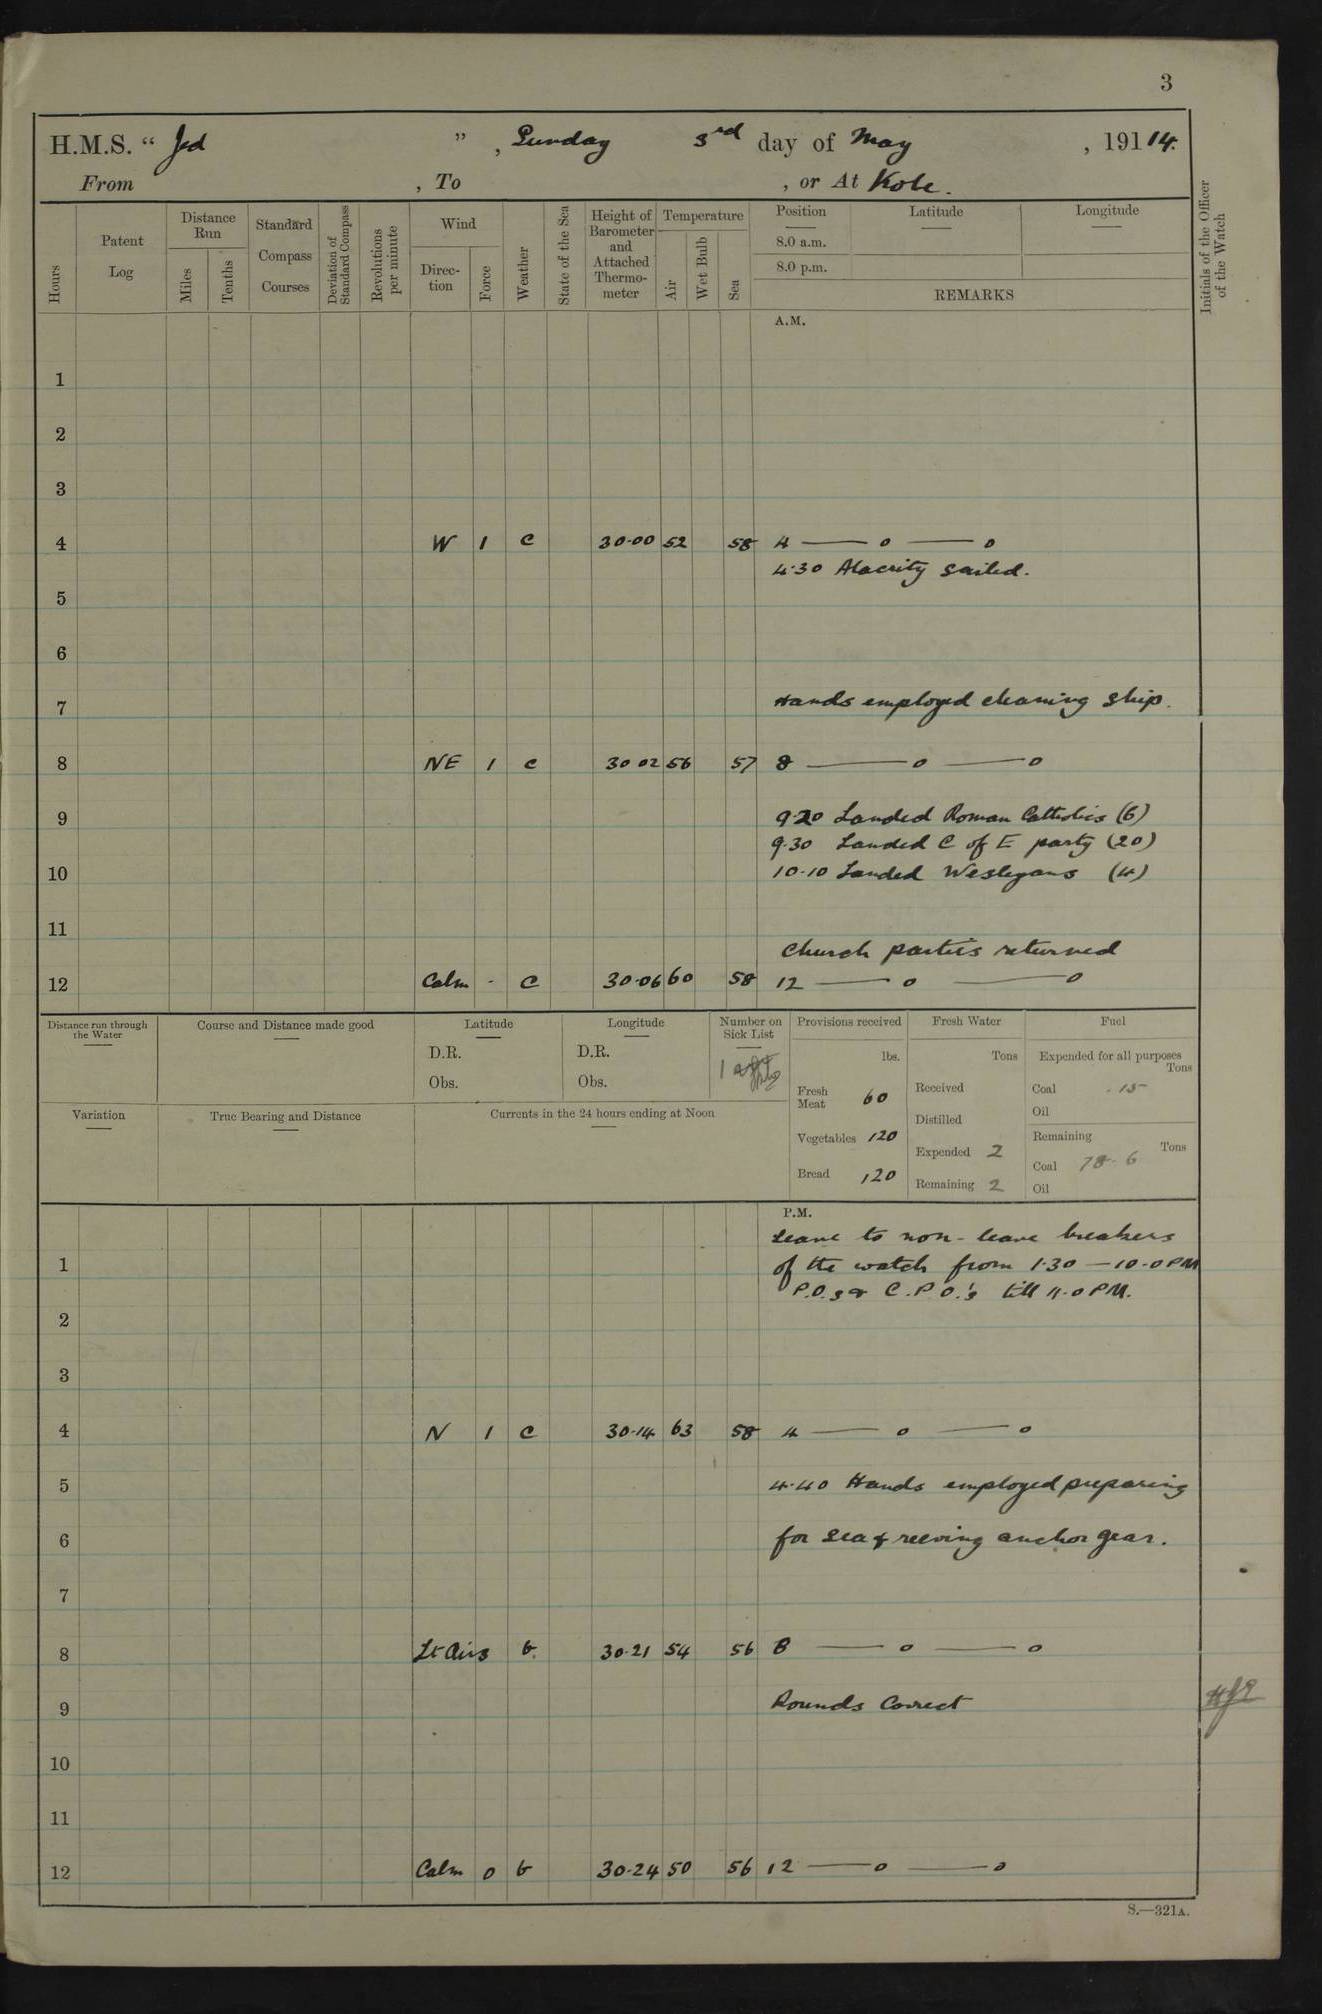 3
H.M.S. " Jed ", Sunday 3rd day of May , 19114.
From , To , or At Kobe.
Hours
Patent Log
Distance Run
Miles
Tenths
Standard Compass Courses
Deviation of Standard Compass
Revolutions per minute
Wind
Direction
Force
Weather
State of the Sea
Height of Barometer and Attached Thermometer
Temperature
Air
Wet Bulb
Sea
Position Latitude Longitude
8.0 a.m.
8.0 p.m.
REMARKS
Initials of the Officer of the Watch
A.M.
1
2
3
4 W 1 c 30.00 52 58 4 — o — o
4.30 Alacrity sailed.
5
6
7 Hands employed cleaning ship.
8 NE 1 c 30 02 56 57 8 — o — o
9 9.20 Landed Roman Catholics (6)
9.30 Landed C of E party (20)
10 10.10 Landed Wesleyans (4)
11
Church parties returned
12 Calm - c 30.06 60 58 12 — o — o
Distance run through the Water
Course and Distance made good
Latitude
D.R.
Obs.
Longitude
D.R.
Obs.
Number on Sick List
1
Provisions received
lbs.
Fresh Meat 60
Vegetables 120
Bread 120
Fresh Water
Tons
Received
Distilled
Expended 2
Remaining 2
Fuel
Expended for all purposes
Tons
Coal .15
Oil
Remaining
Tons
Coal 78.6
Oil
Variation
True Bearing and Distance
Currents in the 24 hours ending at Noon
P.M.
Leave to non-leave breakers
1 of the watch from 1.30 — 10.0 PM
P.O.s & C.P.O.'s till 11.0 PM.
2
3
4 N 1 c 30.14 63 58 4 — o — o
5 4.40 Hands employed preparing
6 for sea & reeving anchor gear.
7
8 Lt Airs b. 30.21 54 56 8 — o — o
9 Rounds Correct
10
11
12 Calm 0 b 30.24 50 56 12 — o — o
S.—321A.